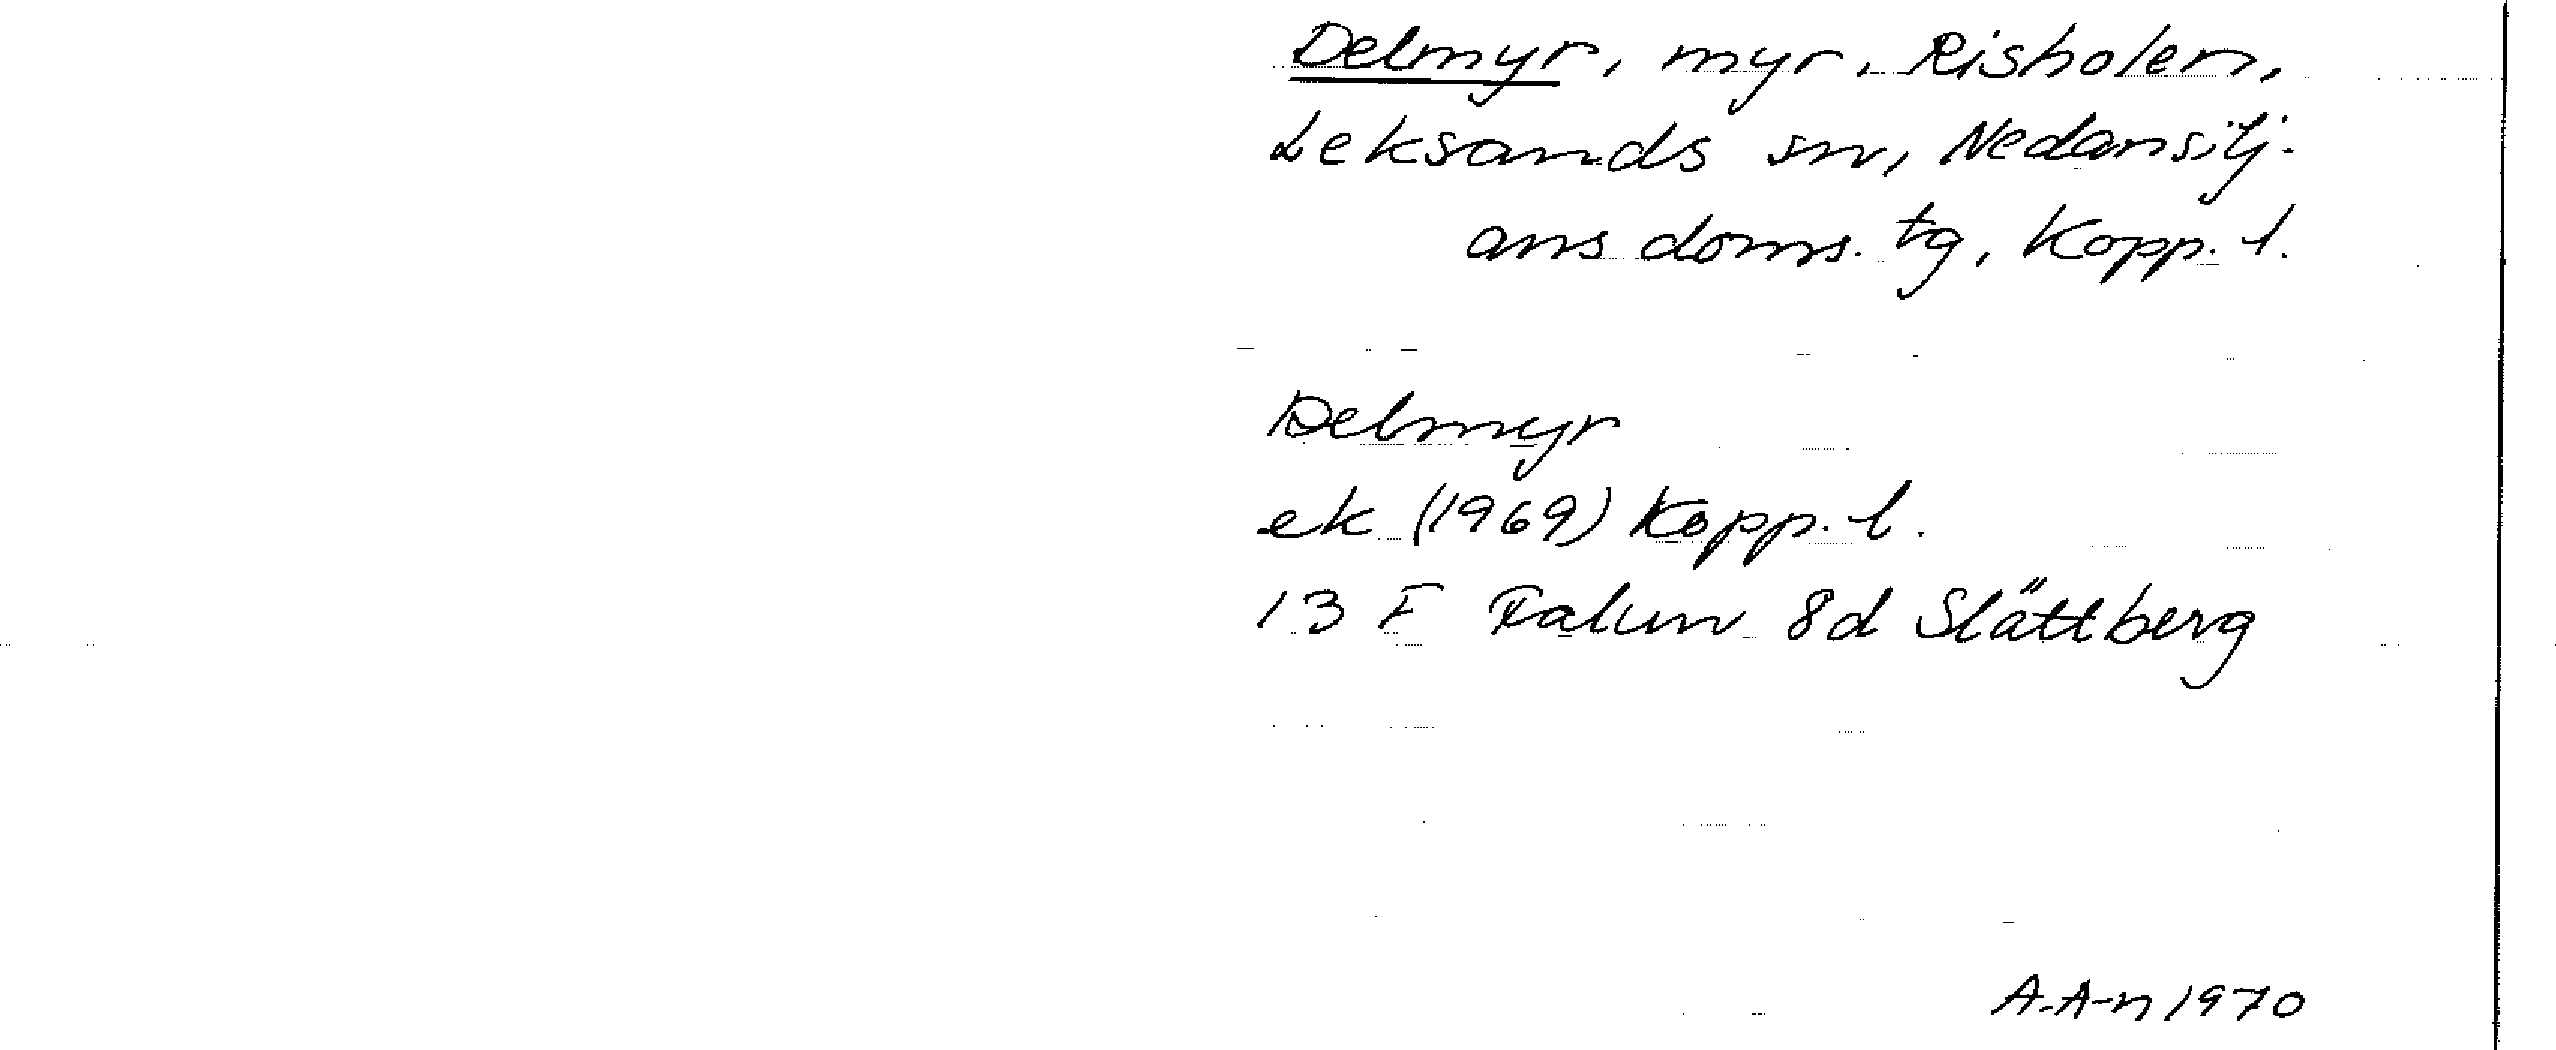 Delmyr, myr, Risholen,
Leksands sn, Nedansilj-
ans doms. tg, Kopp. l.
Delmyr
ek (1969) Kopp. l.
13 F Falun 8d Slättberg
A.A-n 1970